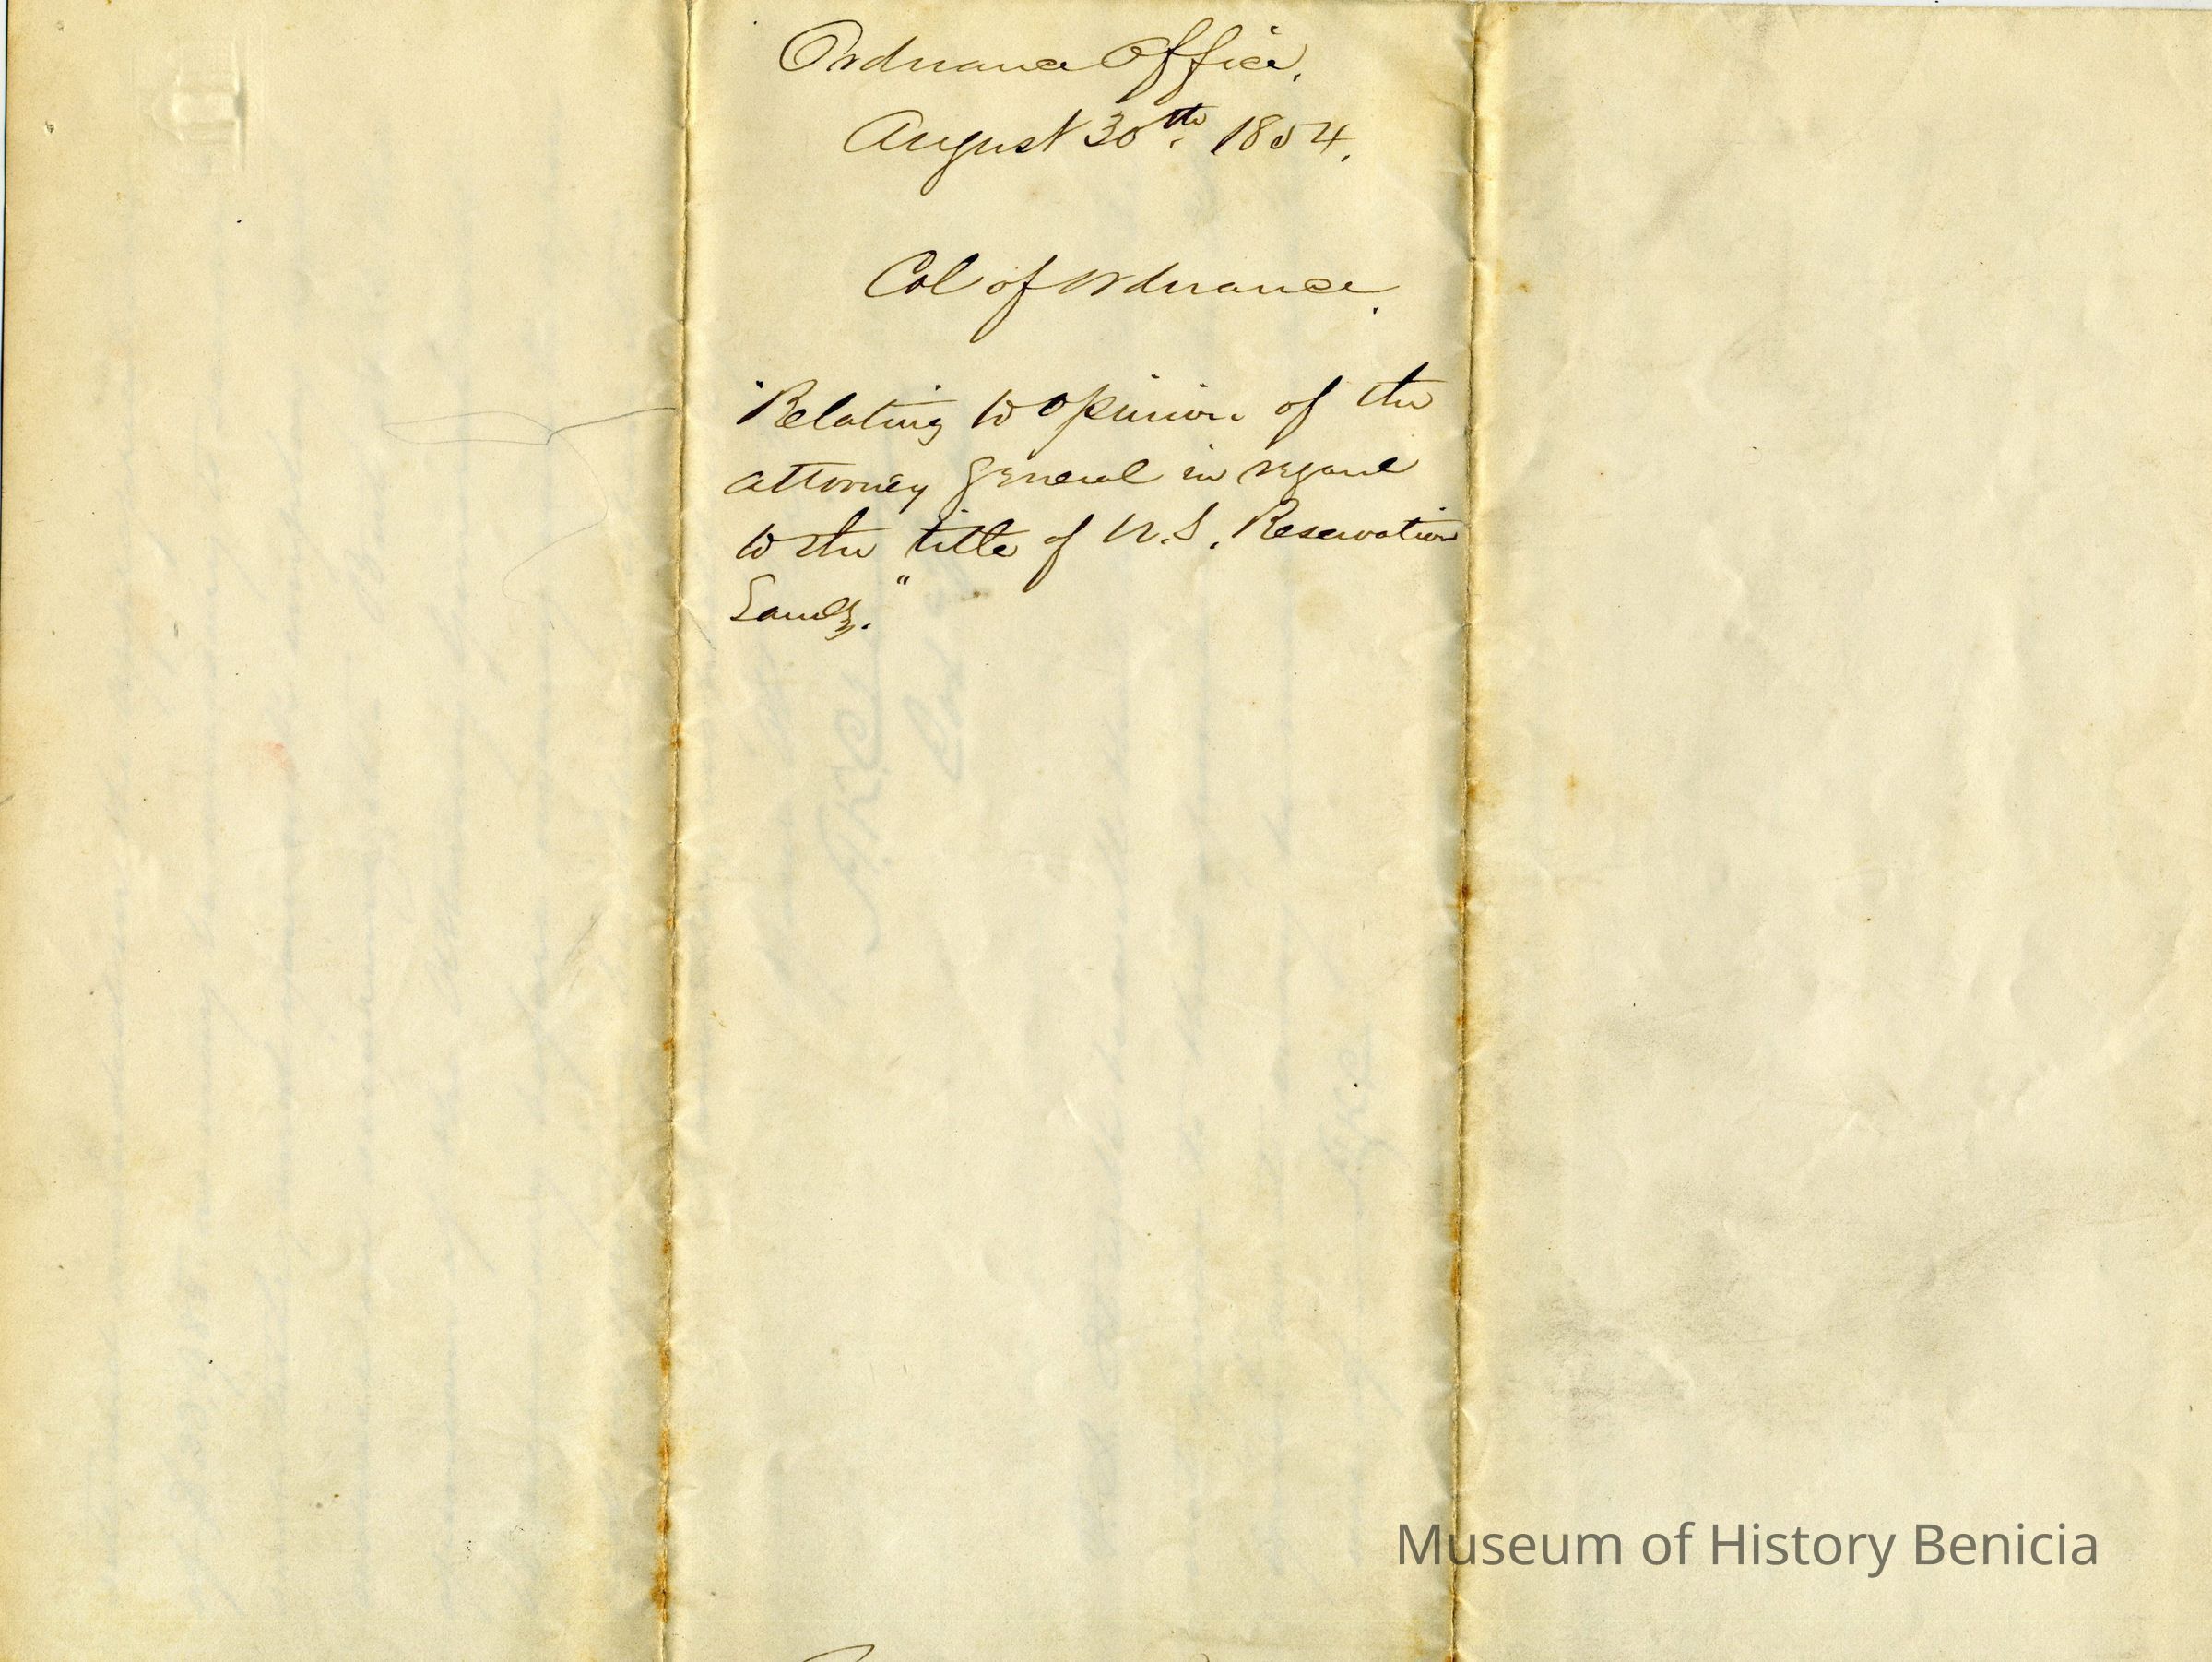 Ordnance Office.
August 30th. 1854.
Col of Ordnance.
"Relating to opinion of the
attorney General in regard
to the title of U.S. Reservation
Lands."
Museum of History Benicia